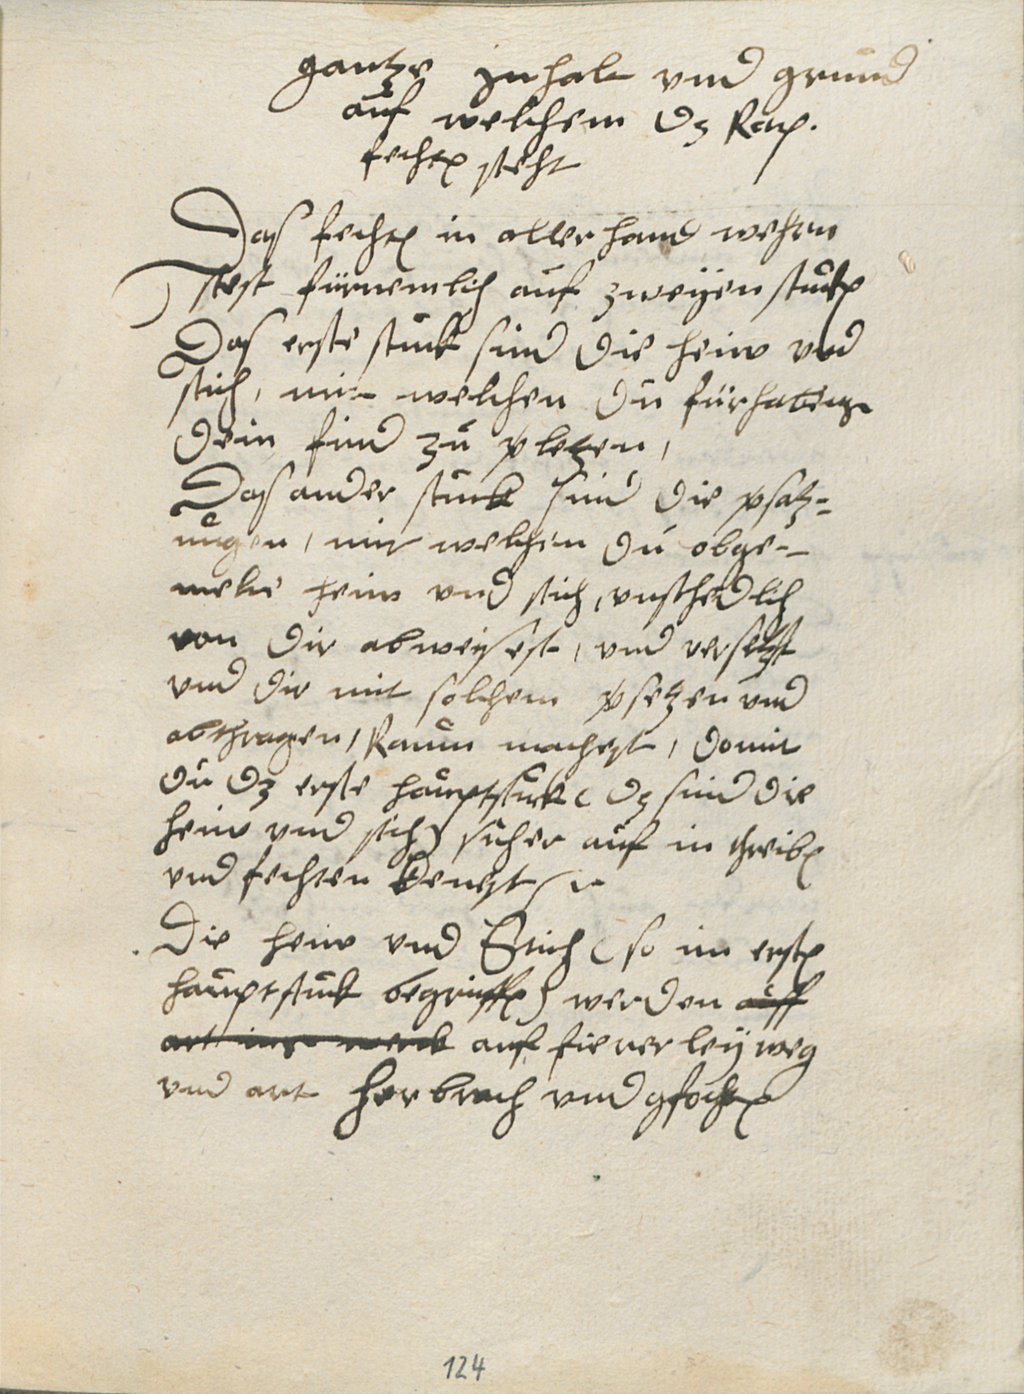 gantze inhalt vnd grund
auf welchem dz Rap.
fechten steht
Das fechten in allerhand wehren
stest fürnemlich auf zweyen stucken
Das erste stuck sind die heiw vnd
stich, mit welchen du fürhabens
dein find zu vletzen,
Das ander stuck sind die vsatz=
ungen, mit welchen du obge-
melte heiw vnd stich, vnschedlich
von dir abweisest, vnd versetzst
vnd dir mit solchem vsetzen vnd
abthragen, Raum machest, domit
du dz erste hauptstuck (dz sind die
heiw vnd stich) sicher auf in threiben
vnd fechten kenest
Die heiw vnd Stich (so im ersten
hauptstuck begriffen) werden auff
art werck auf fiererley weg
vnd art herbracht vnd gfochten
124